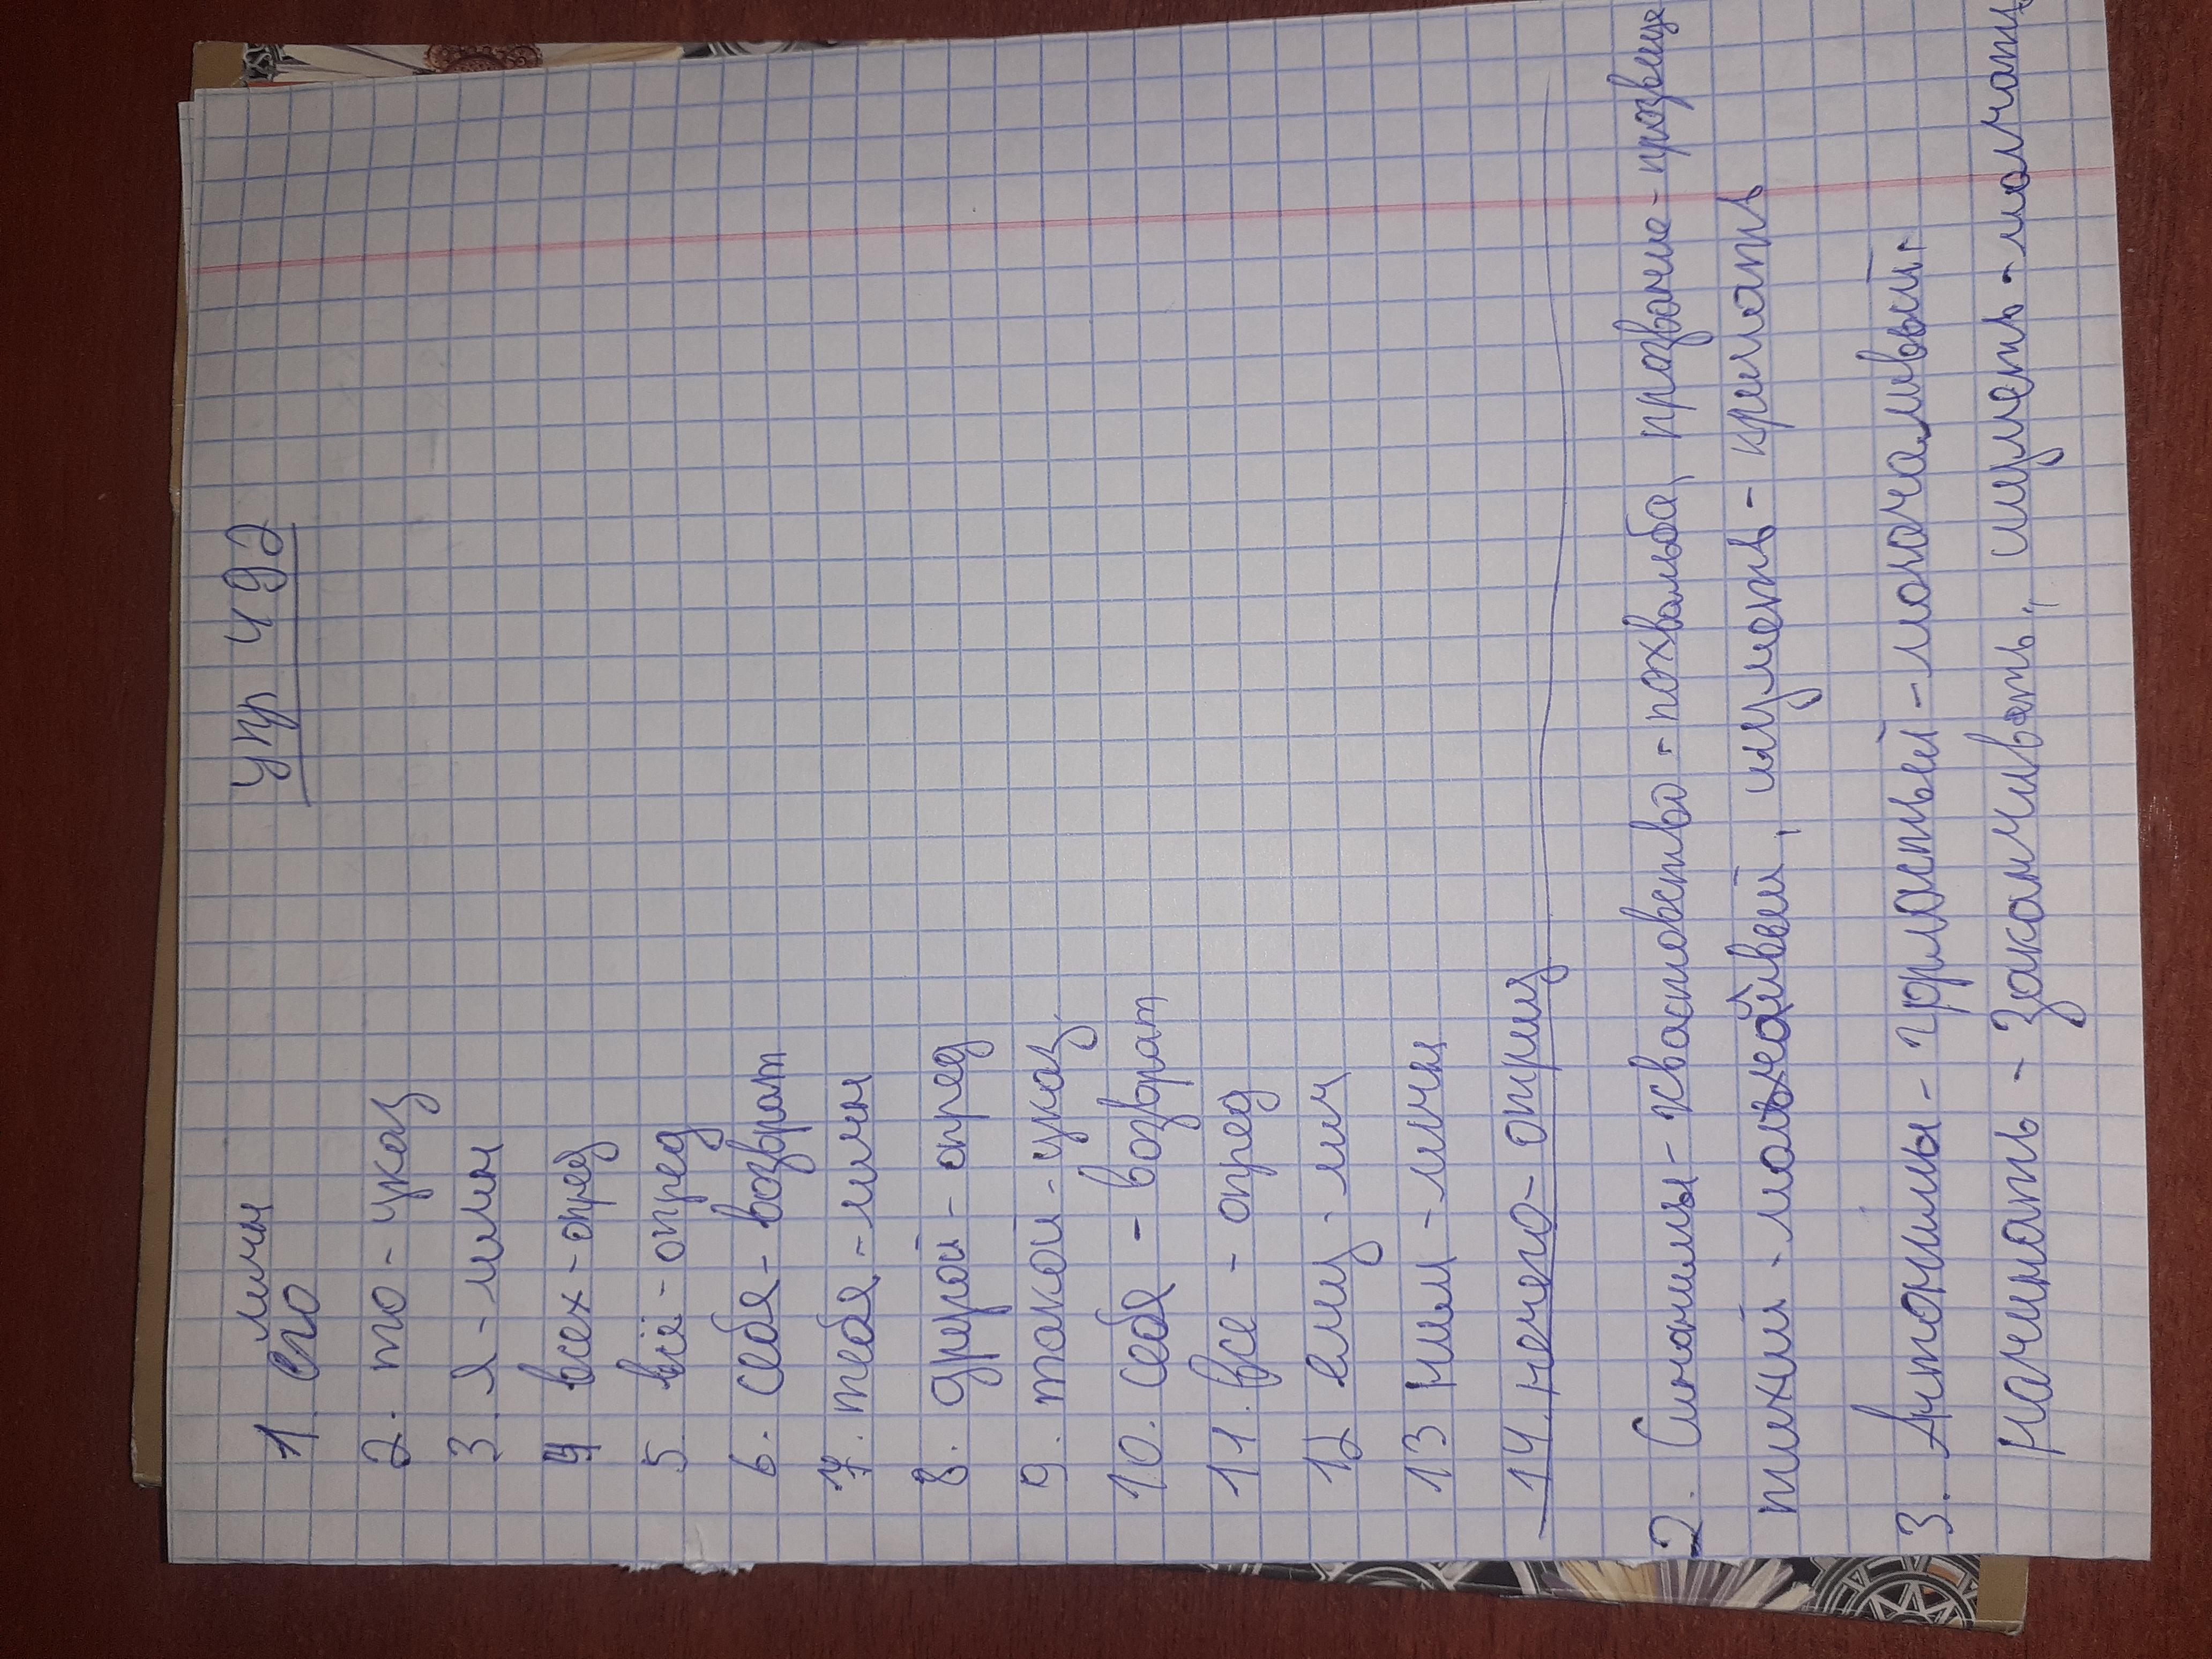 упр 492
личн
1. его
2. то - указ
3. я - личн
4 всех - опред
5 всё - опред
6. себя - возврат
7. тебя - личн
8. другой - опред
9. такой - указ
10. себя - возврат
11. все - опред
12 ему - лич
13 Ним - личн
14. нечего - отриц
2. Синонимы - хвастовство - похвальба, прозвание - прозвище
тихий -, шуметь - кричать
3. Антонимы - горластый - молчаливый.
начинать - заканчивать, шуметь - молчать